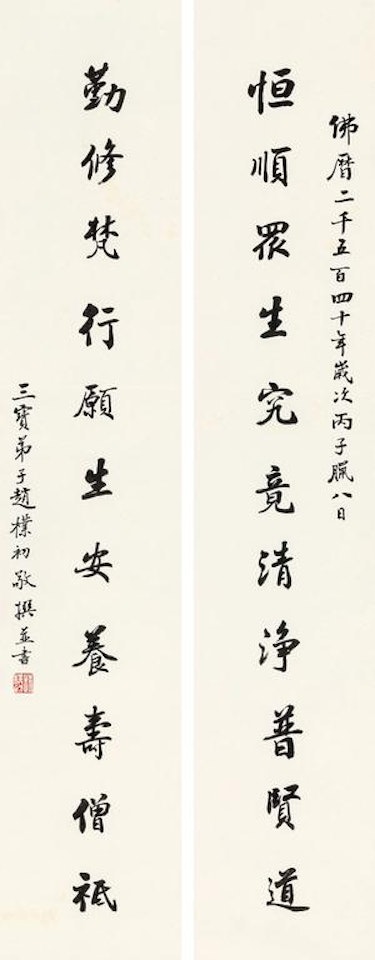 佛曆二千五百四十年歲次丙子臘八日
恒順眾生究竟清浄普賢道
勤修梵行願生安養壽僧祇
三寶弟子趙樸初敬撰並書